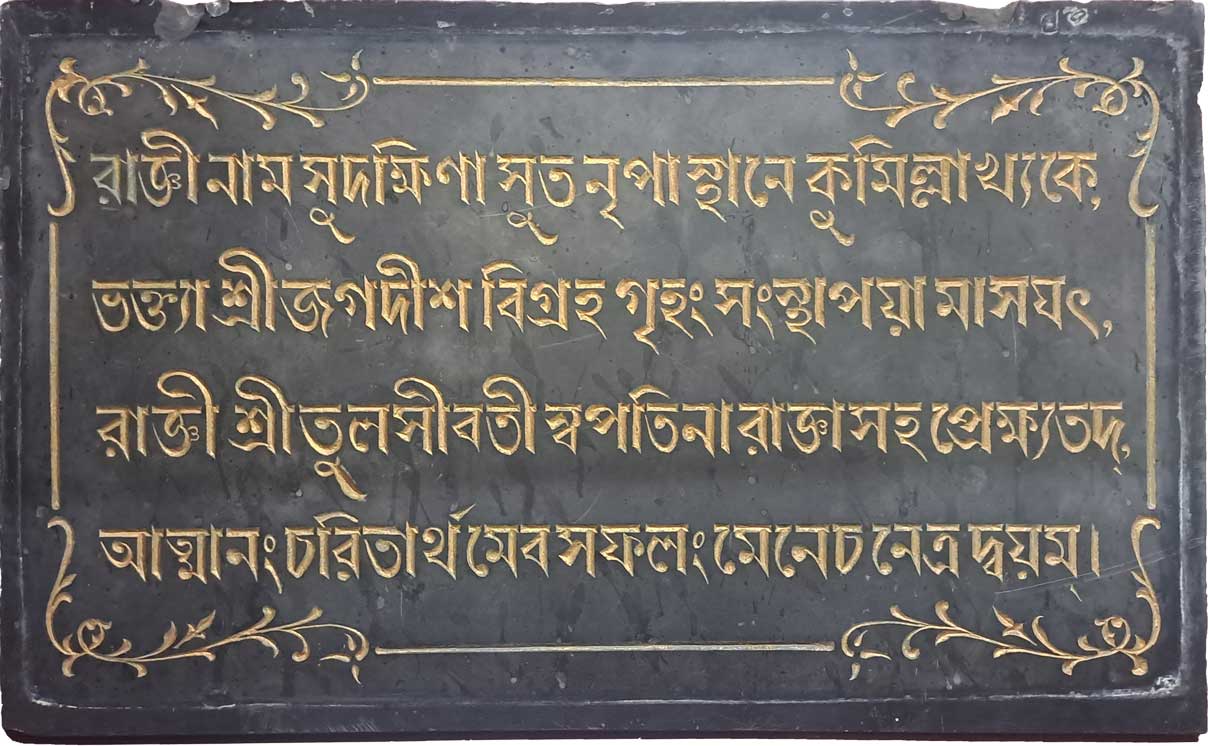 রাজ্ঞী নাম সুদক্ষিণা সুত নৃপা স্থানে কুমিল্লাখ্যকে,
ভক্ত্যা শ্রীজগদীশ বিগ্রহ গৃহং সংস্থাপয়া মাসযৎ,
রাজ্ঞী শ্রীতুলসীবতী স্বপতিনা রাজ্ঞা সহ প্রেক্ষ্যতদ্,
আত্মানং চরিতার্থমেব সফলং মেনেচ নেত্র দ্বয়ম।